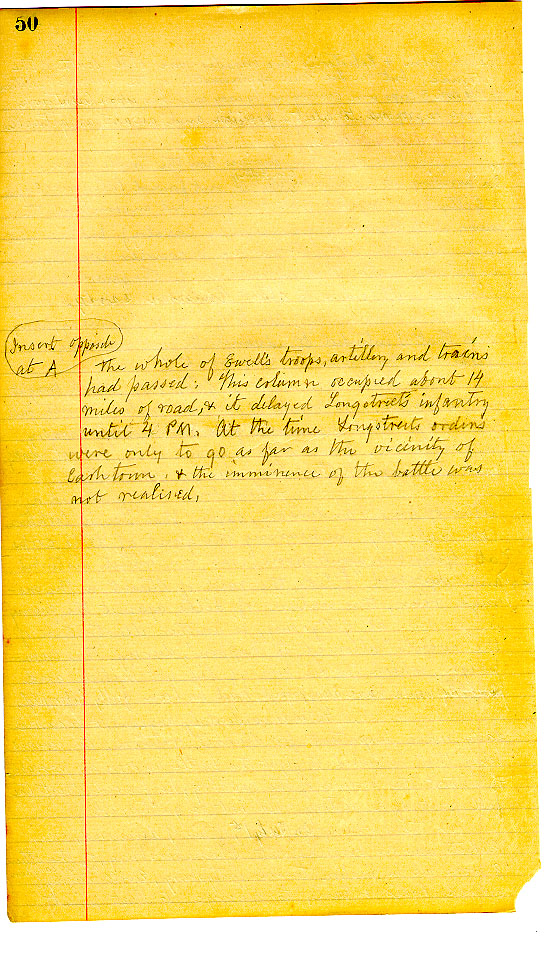 50
Insert opposite
at A
the whole of Ewell's troops, artillery and trains
had passed. This column occupied about 14
miles of road, & it delayed Longstreet's infantry
until 4 PM. At the time Longstreets orders
were only to go as far as the vicinity of
Cashtown, & the imminence of the battle was
not realised.